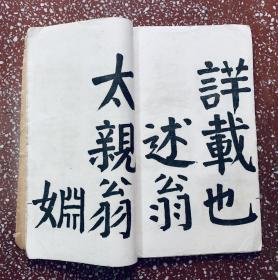 詳載也
述翁
太親翁
姻